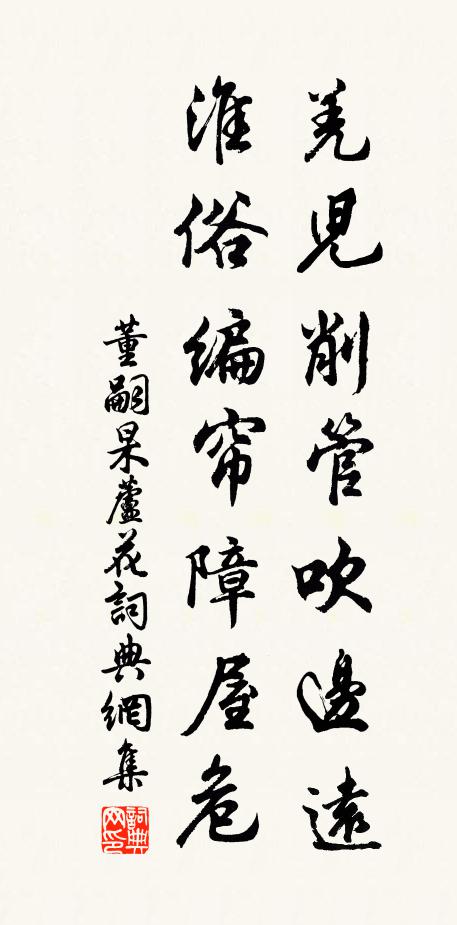 羌児削管吹邊遠
淮俗編帘障屋危
董嗣杲蘆花詞典網集
詞典网印